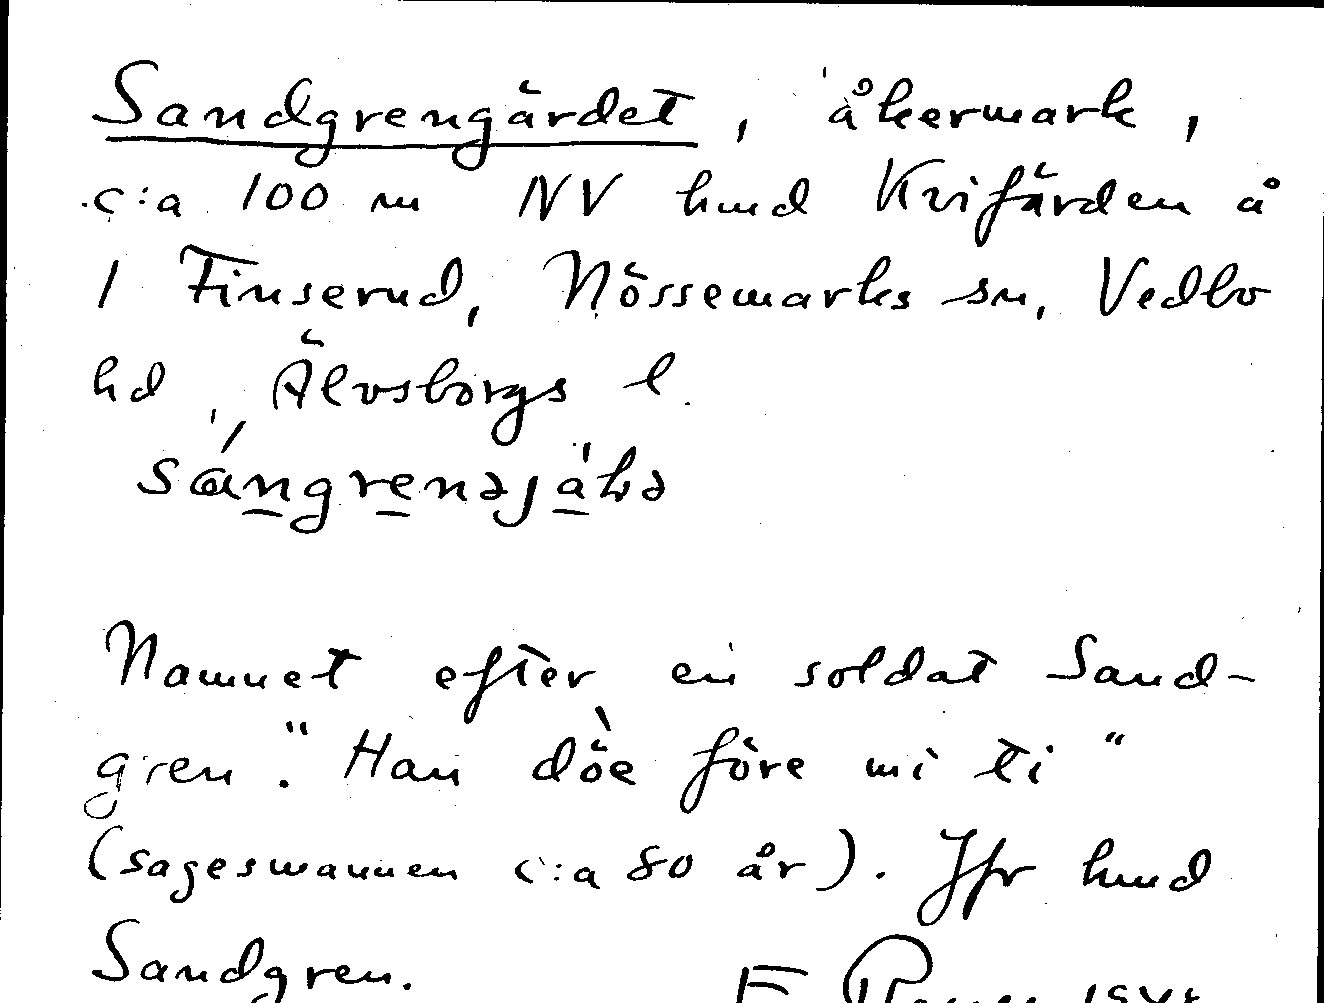 Sandgrengärdet, åkermark,
c:a 100 m NV hmd Kvifärden å
1 Finserud, Nössemarks sn, Vedbo
hd, Älvsborgs l.
sáŋgrenəjàɫə
Namnet efter en soldat Sand-
gren. "Han döe före mi ti"
(sagesmannen c:a 80 år). Jfr hmd
Sandgren.
F